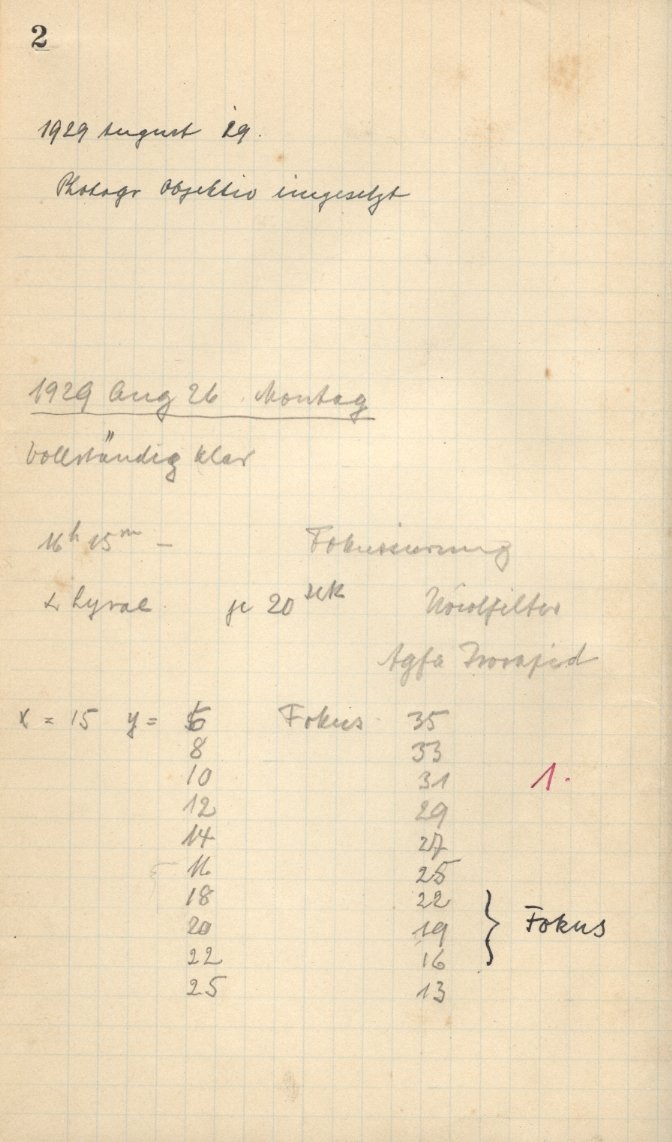 2
1929 August 19.
Photogr Objektiv eingesetzt
1929 Aug 26 Montag
Vollständig klar
16h 15m – Fokussierung
α Lyrae je 20 sek
Agfa Isorapid
x = 15 y = 6 Fokus 35
8 33
10 31
12 29
14 27
16 25
18 22
20 19
22 16
25 13
1.
} Fokus